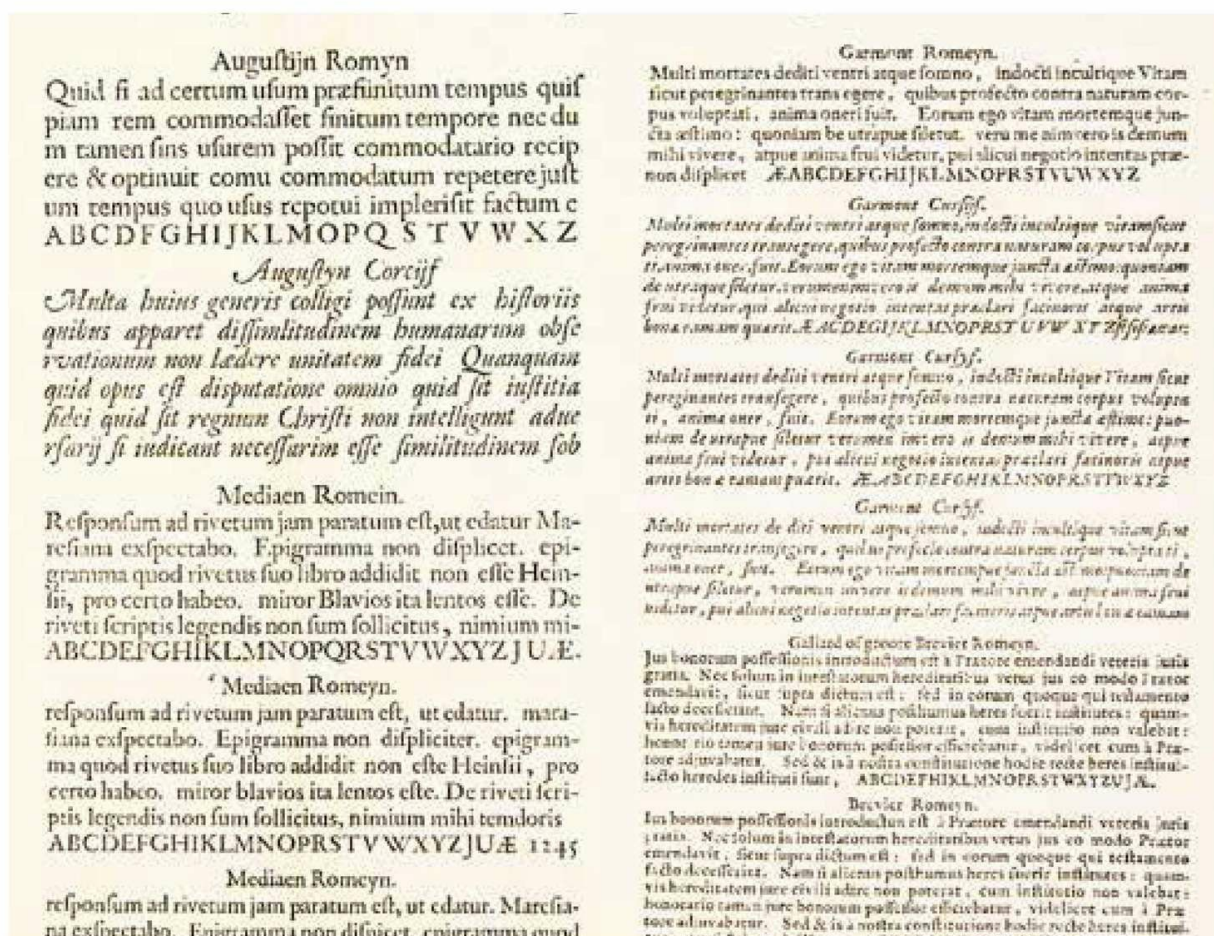 Augustijn Romyn
Quid ſi ad certum uſum præfiinitum tempus quiſ
piam rem commodaſſet finitum tempore nec du
m tamen ſins uſurem poſſit commodatario recip
ere & optinuit comu commodatum repetere juſt
um tempus quo uſus repotui impleriſit factum e
ABCDFGHIJKLMOPQ S T V W X Z
Auguſtyn Corcijf
Multa huius generis colligi poſſunt ex hiſtoriis
quibus apparet diſſimilitudinem humanarum obſe
rvationum non lædere unitatem fidei Quanquam
quid opus eſt disputatione omnio quid ſit iuſtitia
fidei quid ſit regnum Chriſti non intelligunt adue
rſarij ſi iudicant neceſſarim eſſe ſimilitudinem ſob
Mediaen Romein.
Reſponſum ad rivetum jam paratum eſt,ut edatur Ma-
reſiana exſpectabo. Epigramma non diſplicet. epi-
gramma quod rivetus ſuo libro addidit non eſſe Hein-
ſii, pro certo habeo. miror Blavios ita lentos eſſe. De
riveti ſcriptis legendis non ſum ſollicitus, nimium mi-
ABCDEFGHIKLMNOPQRSTVWXYZJUÆ.
Mediaen Romeyn.
reſponſum ad rivetum jam paratum eſt, ut edatur. mara-
ſiana exſpectabo. Epigramma non diſpliciter. epigram-
ma quod rivetus ſuo libro addidit non eſte Heinſii, pro
certo habeo. miror blavios ita lentos eſte. De riveti ſcri-
ptis legendis non ſum ſollicitus, nimium mihi temdoris
ABCDEFGHIKLMNOPRSTVWXYZJUÆ 1245
Mediaen Romeyn.
reſponſum ad rivetum jam paratum eſt, ut edatur. Mareſia-
na exſpectabo. Epigramma non diſpicet. epigramma quod
Garmont Romeyn.
Multi mortates dediti ventri atque ſomno, indocti incultique Vitam
ſicut peregrinantes trans egere, quibus profecto contra naturam cor-
pus voluptati, anima oneri fuit. Eorum ego vitam mortemque jun-
cta æſtimo: quoniam be utrapue ſiletur. veru me nim vero is demum
mihi vivere, atpue anima frui videtur, pui alicui negotio intentas præ-
non diſplicet ÆABCDEFGHIJKLMNOPRSTVUWXYZ
Garmont Curſijf.
Multi mortates dediti ventri atque ſomno, indocti incultique vitam ſicut
peregrinantes tranſegere, quibus profecto contra naturam corpus volupta
ti, anima oner, fuit. Eorum ego vitam mortemque juncta æſtimo: quoniam
de utraque ſiletur, verumenimvero is demum mihi vivere, atque anima
frui videtur, qui alicui negotio intentas præclari facinoris atque artis
Garmont Curſyf.
Multi mortates dediti ventri atque ſomno, indocti incultique Vitam ſicut
peregrinantes tranſegere, quibus profecto contra naturam corpus volupta
ti, anima oner, fuit. Eorum ego vitam mortemque juncta æſtimo: puo-
niam de utrapue ſiletur verumen imvero is demum mihi vivere, atpue
anima frui videtur, pui alicui negotio intentas præclari facinoris atpue
ÆABCDEFGHIKLMNOPRSTVWXYZ
Garmont Curſyf.
Multi mortates de diti ventri atque indocti incultique vitam ſicut
peregrinantes tranſegere, quibus profecto contra naturam corpus
anima oner, fuit. Eorum ego vitam
utrapue ſiletur, verumen imvero is demum mihi vivere, atpue anima frui
videtur, pui alicui negotio intentas
Gallard of groote Brevier Romeyn.
Jus bonorum poſſeſſionis introductum eſt à Prætore emendandi veteris juris
gratia. Nec ſolum in inteſtatorum hereditatibus vetus jus eo modo Prætor
emendavit, ſicut ſupra dictum eſt: ſed in eorum quoque qui teſtamento
facto deceſſerint. Nam ſi alienus poſthumus heres fuerit inſtitutes: quam-
vis hereditatem jure civili adire non poterat, cum inſtitutio non valebat:
honorario tamen jure bonorum poſſeſſor efficiebatur, videlicet cum à Præ-
tore adjuvabatur. Sed & is à noſtra conſtitutione hodie recte heres inſtitui-
facto heredes inſtitui ſunt, ABCDEFHIKLMNOPRSTWXYZUJÆ.
Brevier Romeyn.
Ius bonorum poſſeſſionis introductun eſt à Prætore emendandi veteris juris
gratis. Nec ſolum in inteſtatorum hereditatibus vetus jus eo modo Prætor
emendavit, ſicut ſupra dictum eſt: ſed in eorum quoque qui teſtamento
facto deceſſerint. Nam ſi alienus poſthumus heres fuerit inſtitutes: quam-
vis hereditatem jure civili adire non poterat, cum inſtitutio non valebat:
honorario tamen jure bonorum poſſeſſor efficiebatur, videlicet cum à Præ
tore adjuvabatur. Sed & is à noſtra conſtitutione hodie recte heres inſtitui.